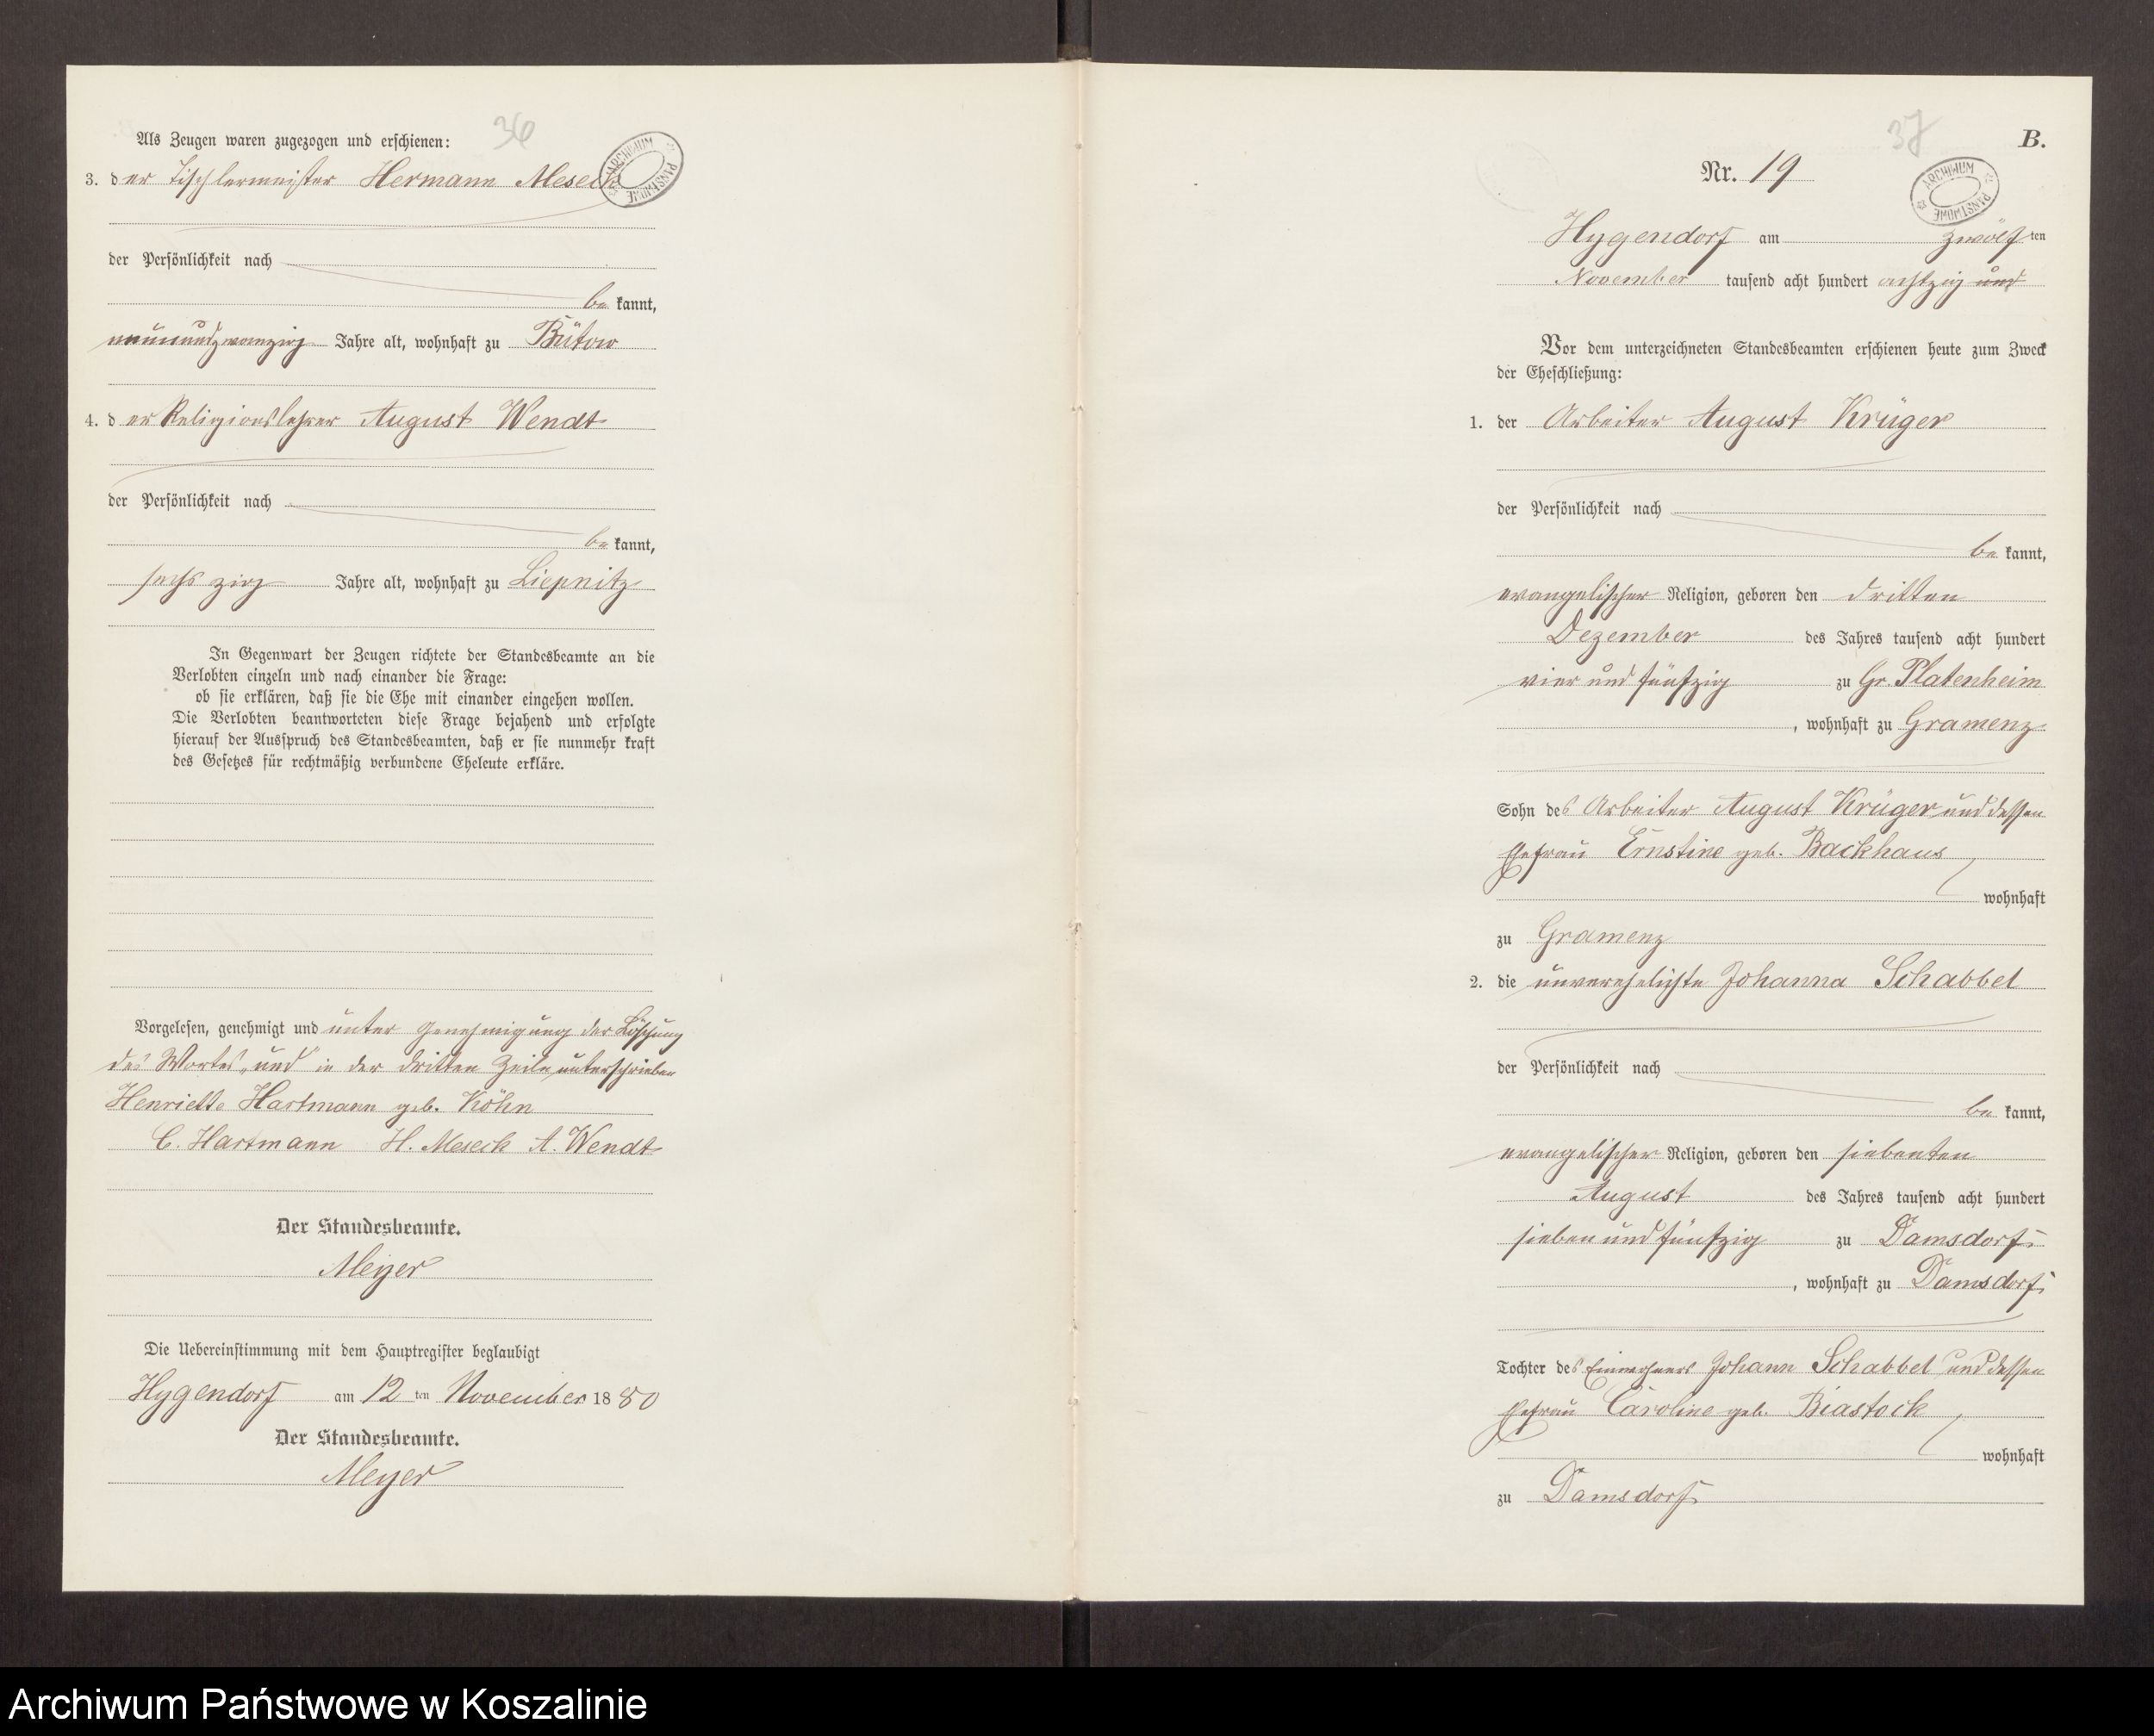 36
Als Zeugen waren zugezogen und erschienen:
ARCHIWUM PAŃSTWOWE
3. der Tischlermeister Hermann Meseck
der Persönlichkeit nach
be kannt,
neunundzwanzig Jahre alt, wohnhaft zu Bütow
4. der Religionslehrer August Wendt
der Persönlichkeit nach
be kannt,
sechszig Jahre alt, wohnhaft zu Liepnitz
In Gegenwart der Zeugen richtete der Standesbeamte an die
Verlobten einzeln und nach einander die Frage:
ob sie erklären, daß sie die Ehe mit einander eingehen wollen.
Die Verlobten beantworteten diese Frage bejahend und erfolgte
hierauf der Ausspruch des Standesbeamten, daß er sie nunmehr kraft
des Gesetzes für rechtmäßig verbundene Eheleute erkläre.
Vorgelesen, genehmigt und unter Genehmigung der Löschung
des Wortes „und" in der dritten Zeile unterschrieben
Henriette Hartmann geb. Köhn
C. Hartmann H. Meseck A. Wendt
Der Standesbeamte.
Meyer
Die Uebereinstimmung mit dem Hauptregister beglaubigt
Hygendorf am 12 ten November 1880
Der Standesbeamte.
Meyer
37
B.
Nr. 19
ARCHIWUM PAŃSTWOWE
Hygendorf am zwölf ten
November tausend acht hundert achtzig und
Vor dem unterzeichneten Standesbeamten erschienen heute zum Zweck
der Eheschließung:
1. der Arbeiter August Krüger
der Persönlichkeit nach
be kannt,
evangelischer Religion, geboren den dritten
Dezember des Jahres tausend acht hundert
vier und fünfzig zu Gr. Platenheim
, wohnhaft zu Gramenz
Sohn des Arbeiter August Krüger und dessen
Ehefrau Ernstine geb. Backhaus,
wohnhaft
zu Gramenz
2. die unverehelichte Johanna Schabbel
der Persönlichkeit nach
be kannt,
evangelischer Religion, geboren den siebenten
August des Jahres tausend acht hundert
sieben und fünfzig zu Damsdorf
, wohnhaft zu Damsdorf
Tochter des Einwohners Johann Schabbel und dessen
Ehefrau Caroline geb. Biastock,
wohnhaft
zu Damsdorf
Archiwum Państwowe w Koszalinie